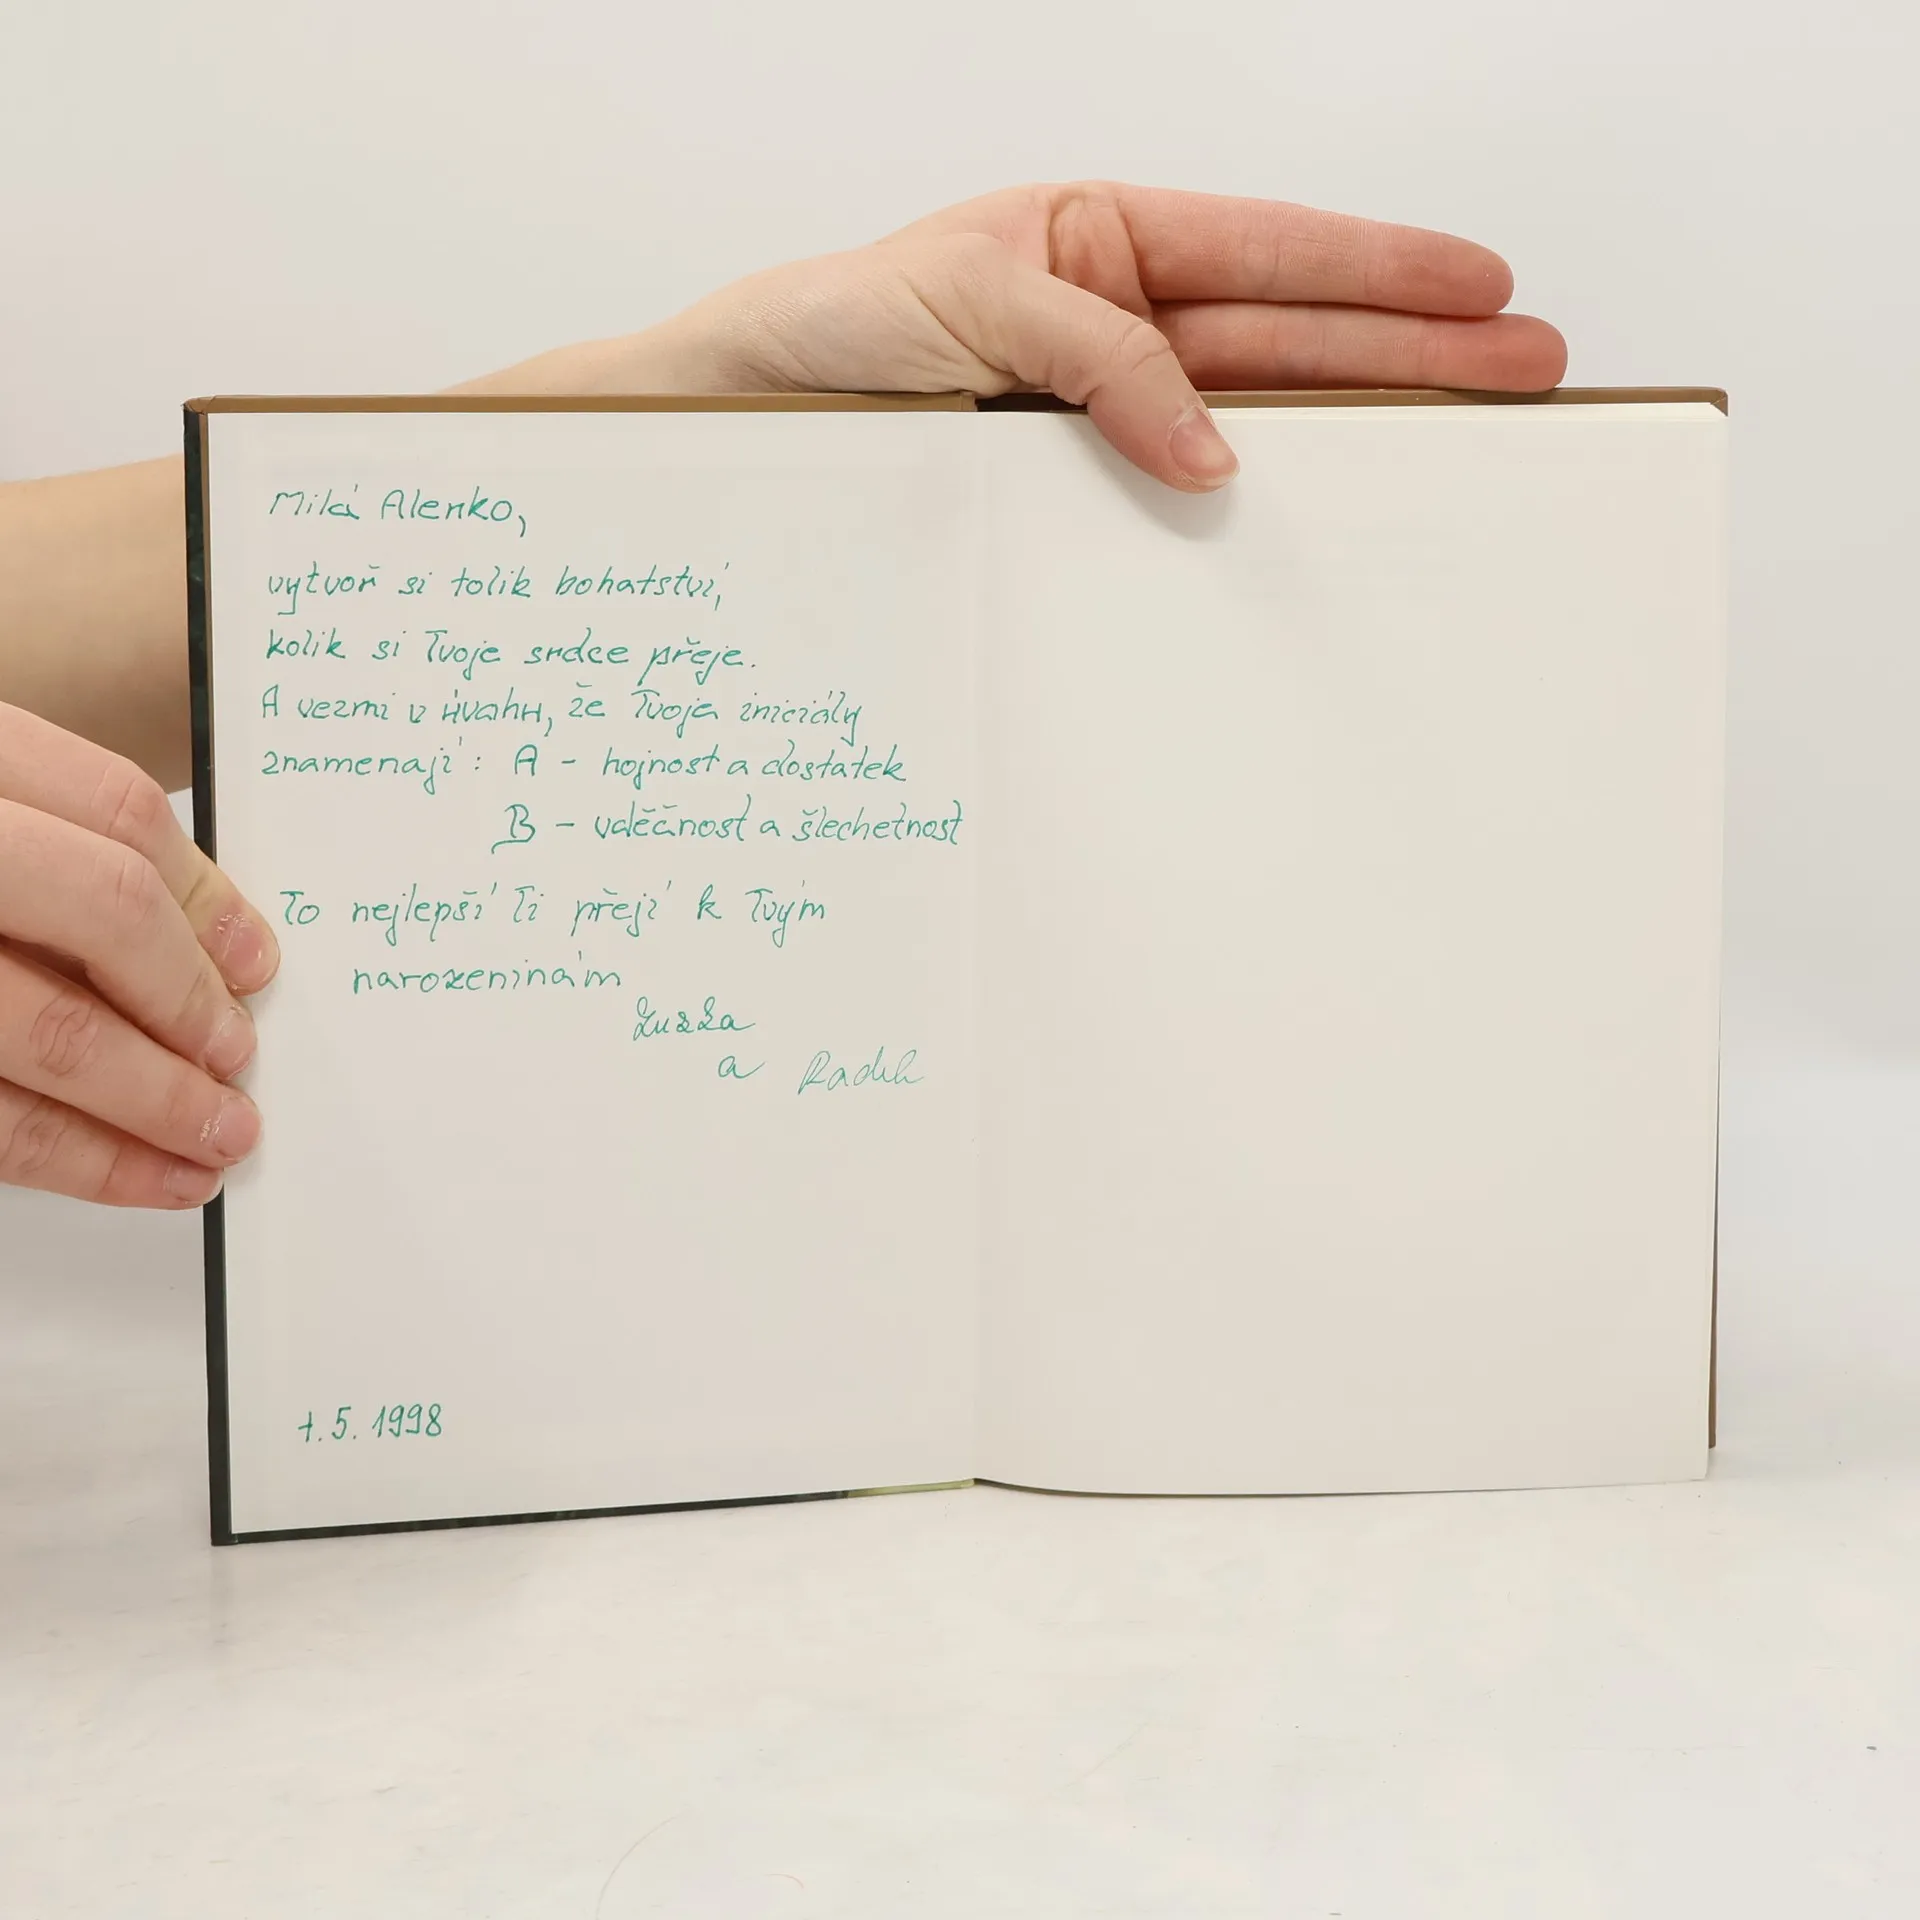 Milá Alenko,
vytvoř si tolik bohatství,
kolik si Tvoje srdce přeje.
A vezmi v úvahu, že Tvoje iniciály
znamenají: A - hojnost a dostatek
B - vděčnost a šlechetnost
To nejlepší Ti přejí k Tvým
narozeninám
Zuzka
a Radek
7.5.1998